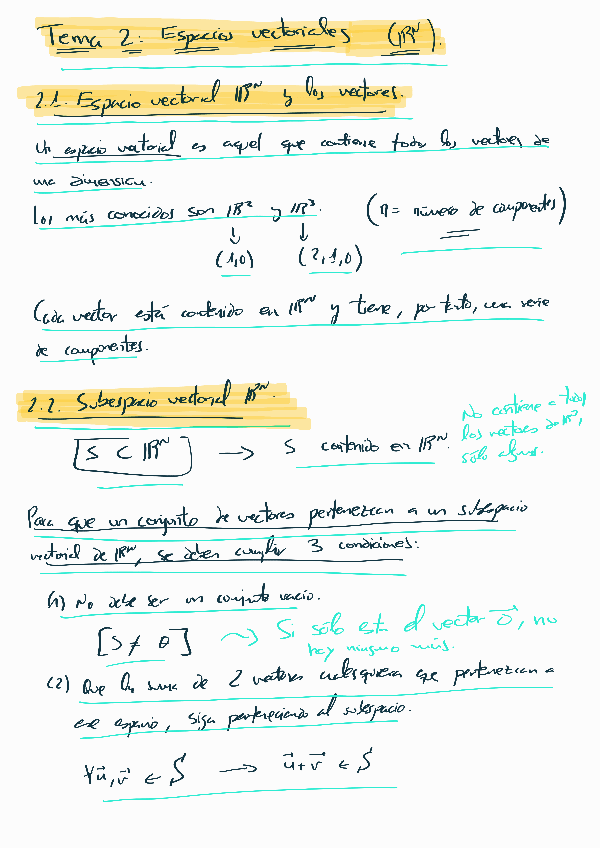 Tema 2: Espacios vectoriales (ℝᴺ).
2.1. Espacio vectorial ℝᴺ y los vectores.
Un espacio vectorial es aquel que contiene todos los vectores de
una dimensión.
Los más conocidos son ℝ² y ℝ³. (n = número de componentes)
↓ ↓
(1,0) (2,1,0)
Cada vector está contenido en ℝᴺ y tiene, por tanto, una serie
de componentes.
2.2. Subespacio vectorial ℝᴺ.
No contiene a todos
los vectores de ℝ³,
sólo algunos.
S ⊂ ℝᴺ → S contenido en ℝᴺ.
Para que un conjunto de vectores pertenezcan a un subespacio
vectorial de ℝᴺ, se deben cumplir 3 condiciones:
(1) No debe ser un conjunto vacío.
[S ≠ ∅] ⇝ Si sólo está el vector 0⃗, no
hay ninguno más.
(2) Que la suma de 2 vectores cualesquiera que pertenezcan a
ese espacio, siga perteneciendo al subespacio.
∀u⃗, v⃗ ∈ S → u⃗ + v⃗ ∈ S